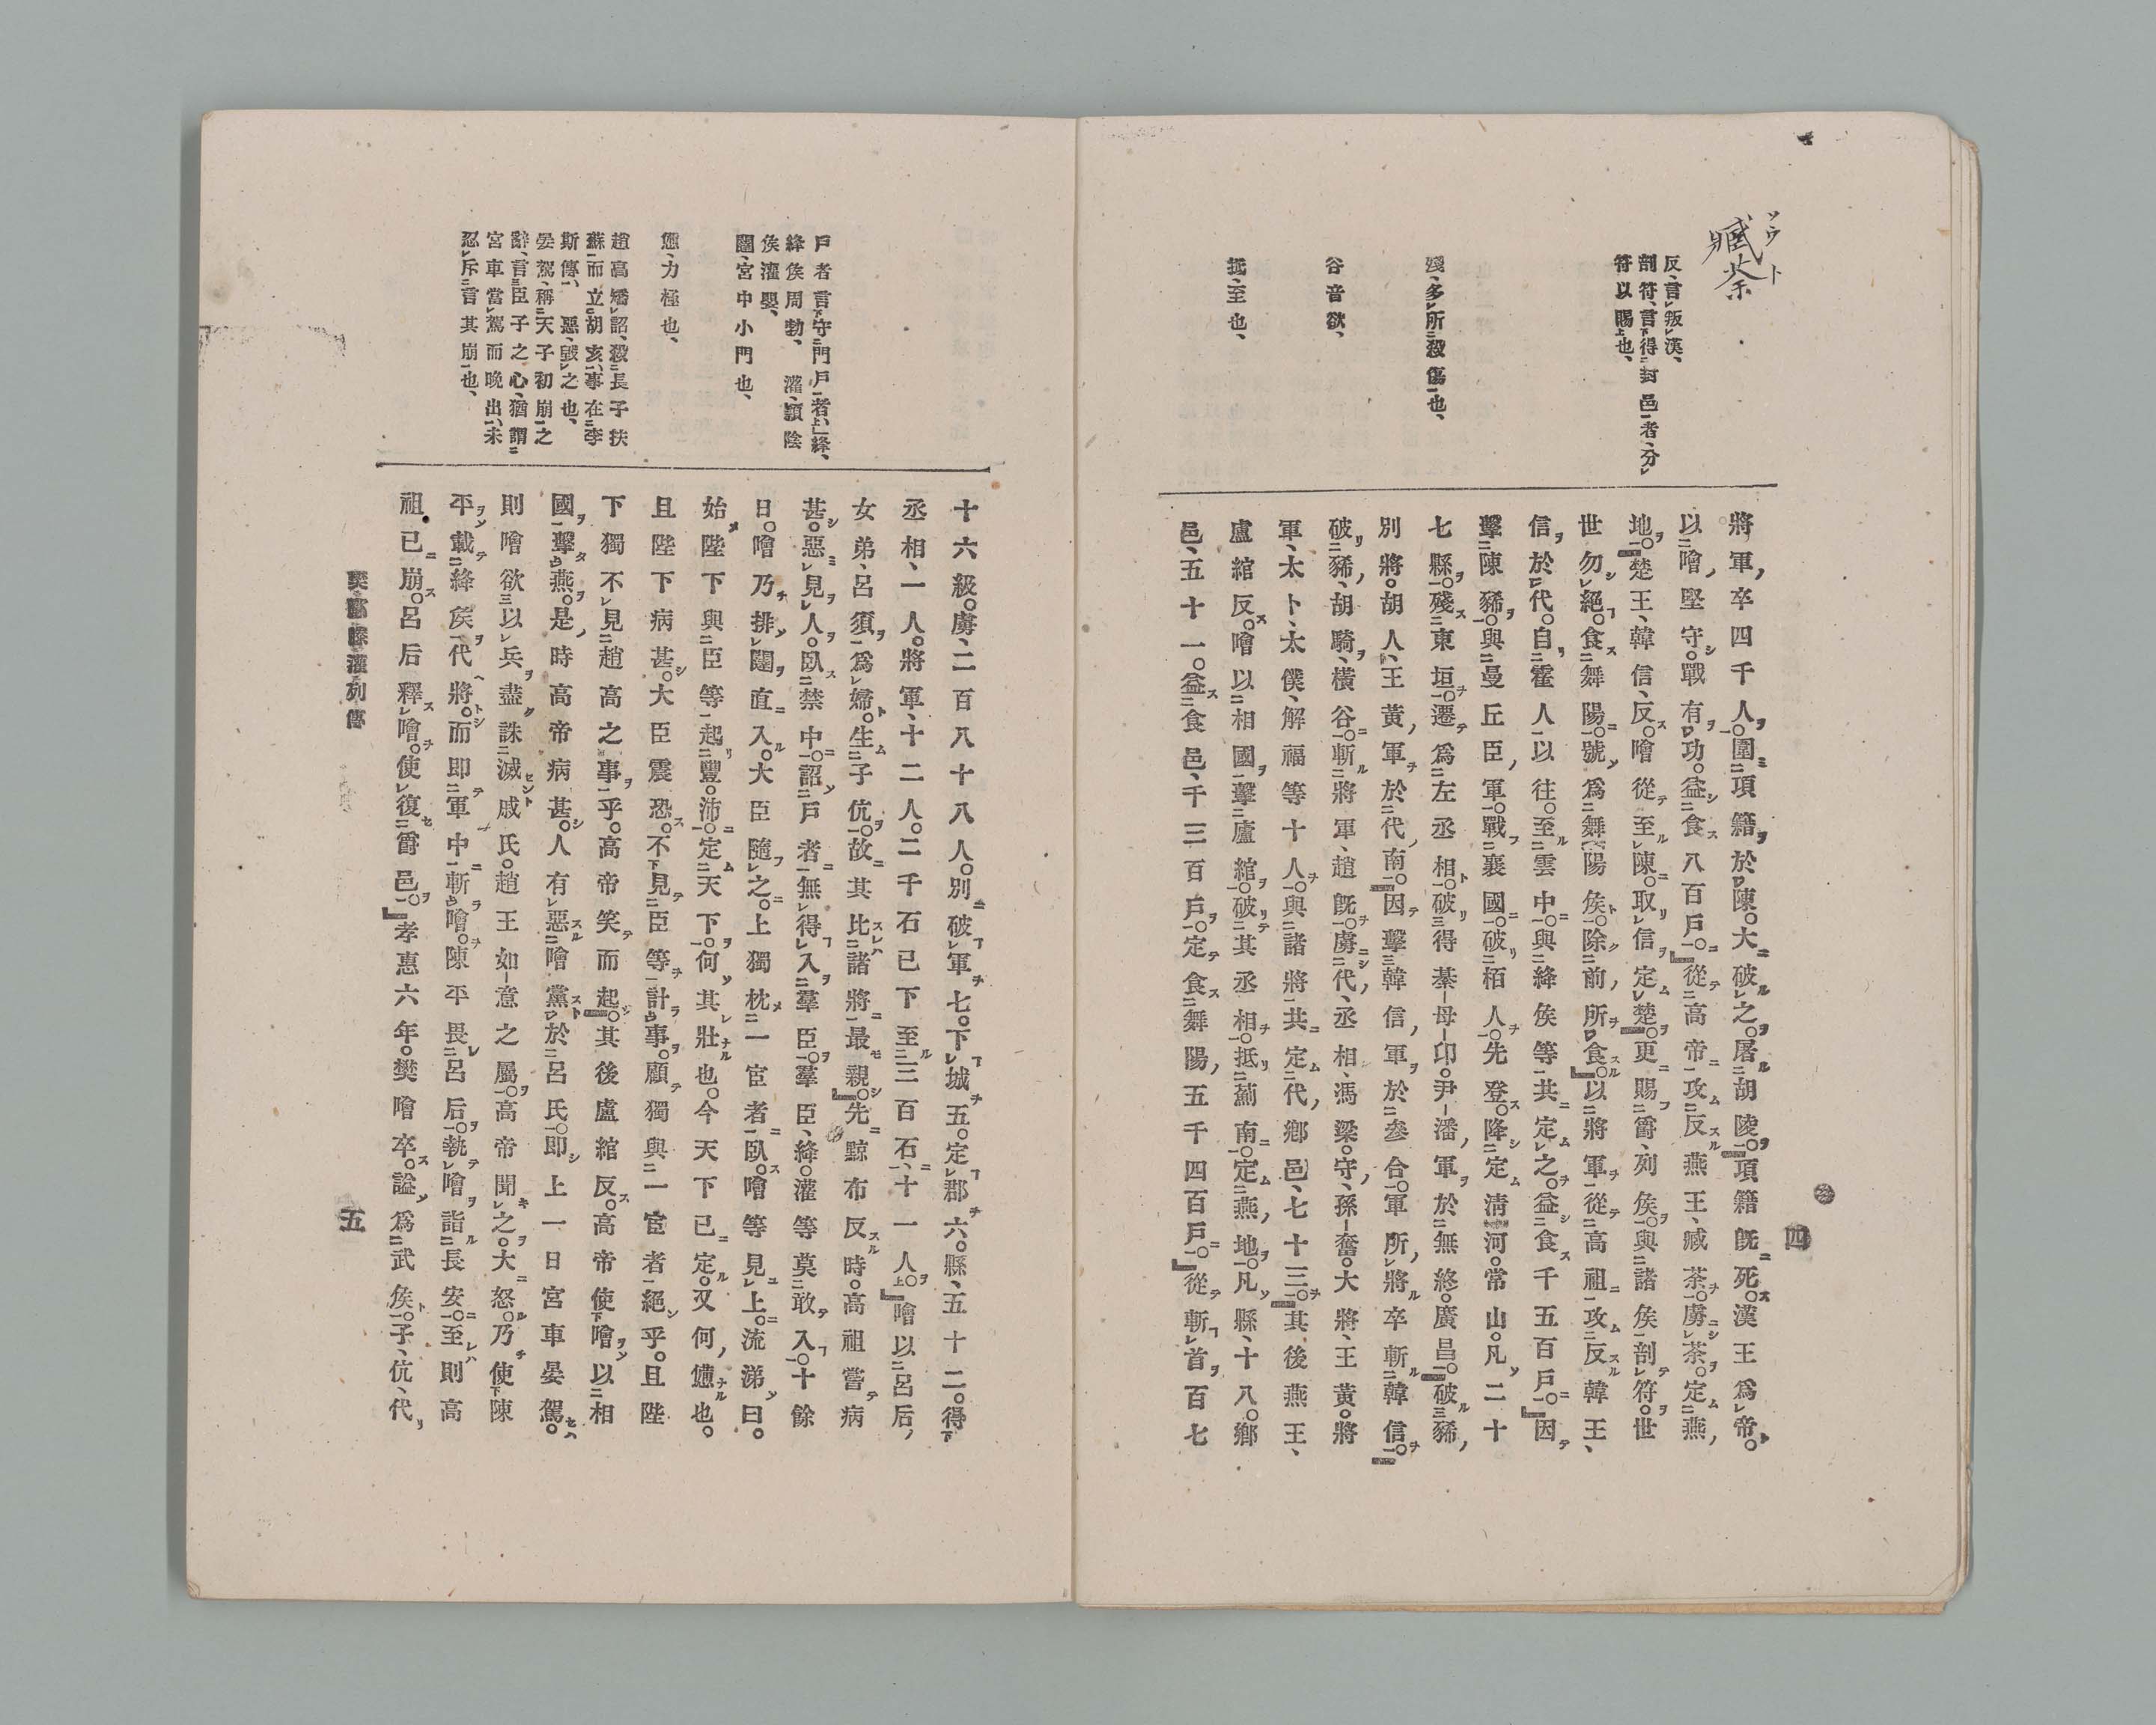 ソウト
臧荼
反、言叛漢、
剖符、言得封邑者、分
符以賜也、
殘、多所殺傷也、
谷音欲、
抵、至也、
將軍、卒四千人。圍項籍、於陳。大破之。屠胡陵。項籍既死。漢王爲帝。
以噲、堅守。戰有功。益食八百戶。從高帝攻反燕王、臧荼。虜荼。定燕、
地。楚王、韓信、反。噲從至陳。取信定楚。更賜爵、列侯。與諸侯剖符。世
世勿絕。食舞陽。號爲舞陽侯。除前所食。以將軍從高祖攻反韓王、
信、於代。自霍人以往。至雲中。與絳侯等共定之。益食千五百戶。因
擊陳豨。與曼丘臣、軍。戰襄國。破柏人。先登。降定淸河。常山。凡二十
七縣。殘東垣。遷爲左丞相。破得綦母卬。尹潘、軍於無終。廣昌。破豨、
別將。胡人、王黃、軍於代、南。因擊韓信、軍於參合。軍所、將卒斬韓信。
破豨、胡騎、橫谷。斬將軍、趙既。虜代、丞相、馮梁。守、孫奮。大將、王黃。將
軍、太卜、太僕、解福等十人。與諸將共定代、鄉邑、七十三。其後燕王、
盧綰反。噲以相國擊盧綰。破其丞相。抵薊南。定燕、地。凡縣、十八。鄉
邑、五十一。益食邑、千三百戶。定食舞陽、五千四百戶。從斬首百七
四
戶者言守門戶者、絳、
絳侯周勃、灌、潁陰
侯灌嬰、
闥、宮中小門也、
憊、力極也、
趙高矯詔、殺長子扶
蘇而立胡亥、事在李
斯傳、惡、毀之也、
晏駕、稱天子初崩之
辭、言臣子之心、猶謂
宮車當駕而晩出、未
忍斥言其崩也、
十六級。虜、二百八十八人。別破軍七。下城五。定郡六。縣、五十二。得
丞相、一人。將軍、十二人。二千石已下至三百石、十一人。噲以呂后、
女弟、呂須爲婦。生子伉。故其比諸將最親。先黥布反時。高祖嘗病
甚。惡見人。臥禁中。詔戶者無得入羣臣。羣臣、絳。灌等莫敢入。十餘
日。噲乃排闥直入。大臣隨之。上獨枕一宦者臥。噲等見上。流涕曰。
始陛下與臣等起豐。沛。定天下。何其壯也。今天下已定。又何、憊也。
且陛下病甚。大臣震恐。不見臣等計事。顧獨與一宦者絕乎。且陛
下獨不見趙高之事乎。高帝笑而起。其後盧綰反。高帝使噲以相
國擊燕。是時高帝病甚。人有惡噲黨於呂氏。即上一日宮車晏駕。
則噲欲以兵盡誅滅戚氏。趙王如意之屬。高帝聞之。大怒。乃使陳
平載絳侯代將。而即軍中斬噲。陳平畏呂后。執噲詣長安。至則高
祖已崩。呂后釋噲。使復爵邑。孝惠六年。樊噲卒。諡爲武侯。子、伉、代
樊酈滕灌列傳
五